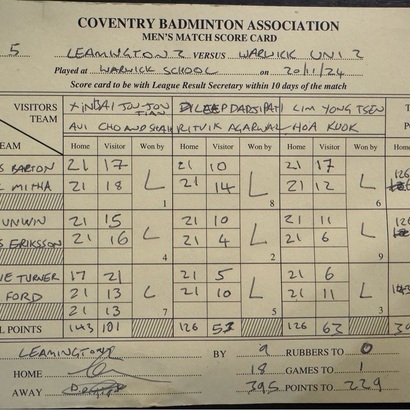 COVENTRY BADMINTON ASSOCIATION
MEN'S MATCH SCORE CARD
5 LEAMINGTON 2 VERSUS WARWICK UNI 2
Played at WARWICK SCHOOL on 20/11/24
Score card to be with League Result Secretary within 10 days of the match
VISITORS TEAM LIM YONG TSEN
RITVIK AGARWAL HOA KUOK
EAM Home Visitor Won by Home Visitor Won by Home Visitor Won by
S BARTON 21 17 21 10 21 17
MITHA 21 18 L 1 21 14 L 8 21 12 L 6
UNWIN 21 15 21 10 21 11
S ERIKSSON 21 16 L 4 21 4 L 2 21 6 L 9
IE TURNER 17 21 21 5 21 6
FORD 21 13 L 7 21 10 L 5 21 11 L 3
21 13
L POINTS 143 101 126 126 63
LEAMINGTON BY 9 RUBBERS TO 0
HOME 18 GAMES TO 1
AWAY 395 POINTS TO 229